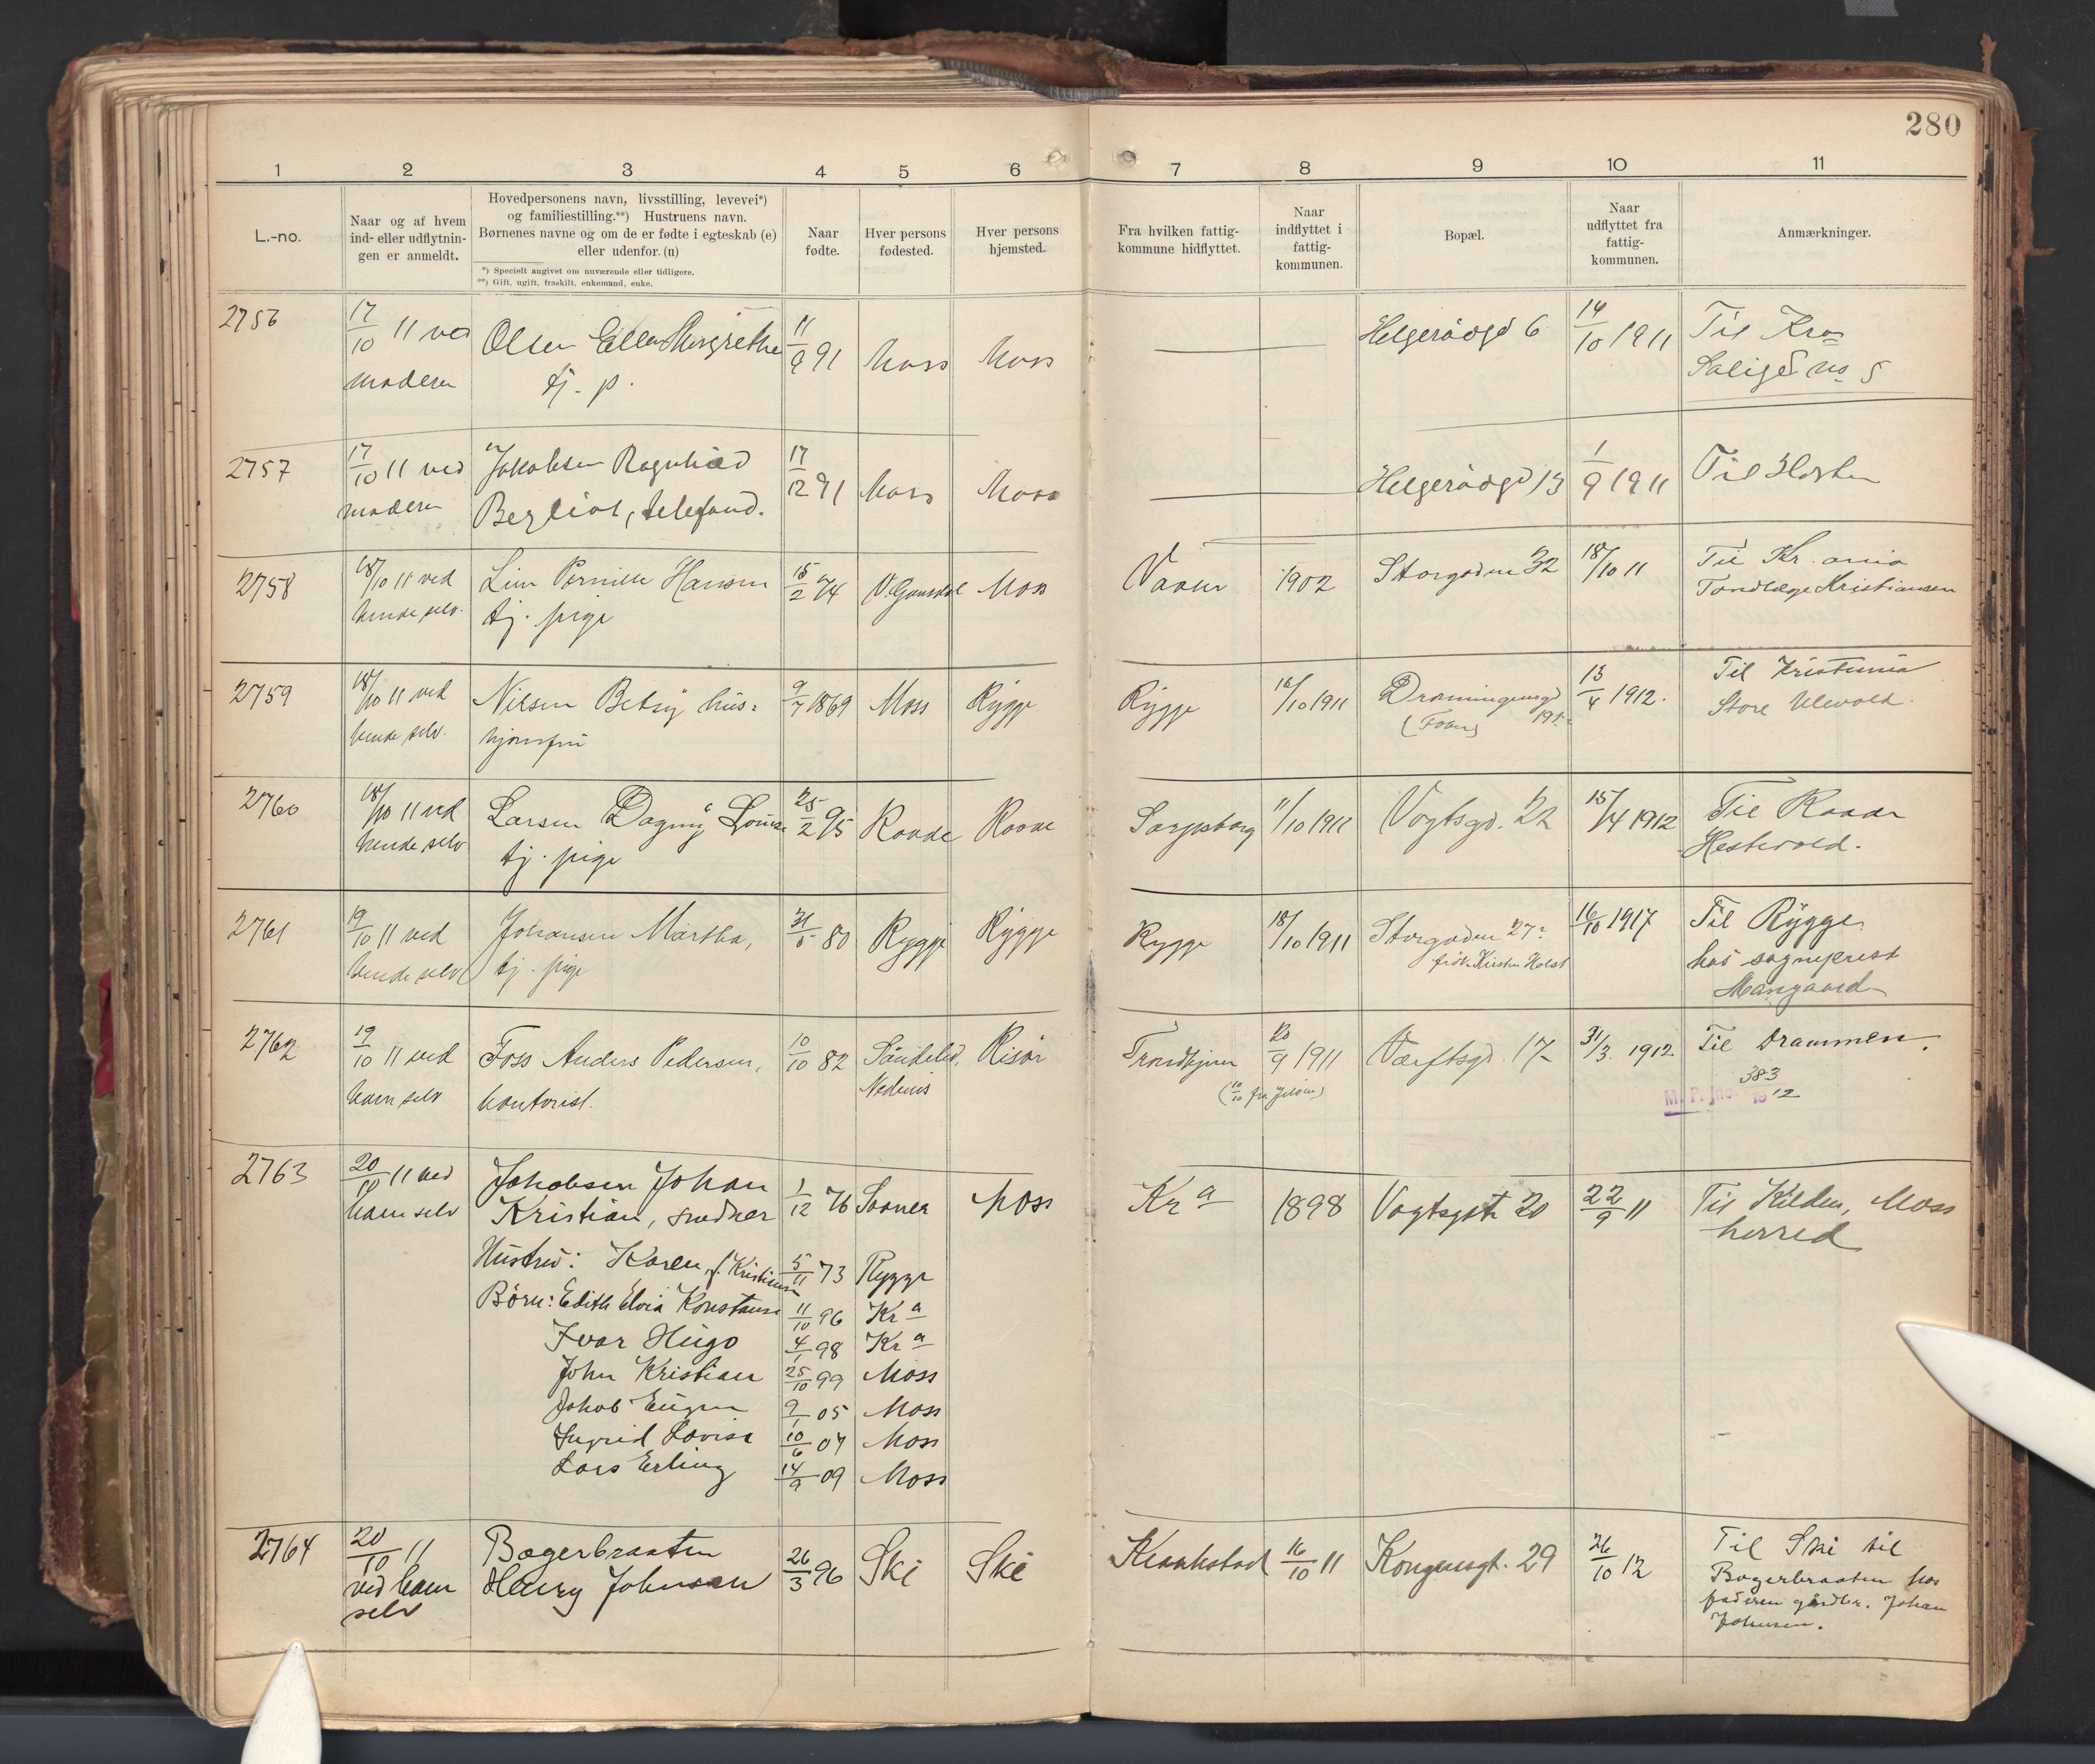 280
1 2 3 4 5 6 7 8 9 10 11
L.-no.
Naar og af hvem
ind- eller udflytnin-
gen er anmeldt.
Hovedpersonens navn, livsstilling, levevei*)
og familiestilling.**) Hustruens navn.
Børnenes navne og om de er fødte i egteskab (e)
eller udenfor. (u)
*) Specielt angivet om nuværende eller tidligere.
**) Gift, ugift, fraskilt, enkemand, enke.
Naar
fødte.
Hver persons
fødested.
Hver persons
hjemsted.
Fra hvilken fattig-
kommune hidflyttet.
Naar
indflyttet i
fattig-
kommunen.
Bopæl.
Naar
udflyttet fra
fattig-
kommunen.
Anmærkninger.
2756 17/10 11 ved Olsen Ellen Margrethe 11/9 91 Moss Moss Helgerødgd 6 14/10 1911 Til Kra
moderen tj. p. no 5
2757 17/10 11 ved Jakobsen Ragnhild 17/12 91 Moss Moss Helgerødgd 13 1/9 1911 Til Horten
moderen Bergliot, telefond.
2758 18/10 11 ved Lina Pernille Hansen 15/2 74 Moss Vaaler 1902 Storgaden 32 18/10 11 Til Kr.ania
hende selv. tj. pige Tandlæge Kristiansen
2759 18/10 11 ved Nilsen Betsy hus- 9/7 1869 Moss Rygge Rygge 16/10 1911 Dronningensgd 13/4 1912. Til Kristiania
hende selv. hjomfru Store Ulevold.
2760 18/10 11 ved Larsen Dagny Lovise 25/2 95 Raade Raade Sarpsborg 11/10 1911 Vogtsgd. 22 15/4 1912 Til Raade
hende selv tj. pige Hestevold.
2761 19/10 11 ved Johansen Martha, 31/5 80 Rygge Rygge Rygge 18/10 1911 Storgaden 27 16/10 1917 Til Rygge
hende selv tj. pige frøk. Kirsten Holst hos sogneprest
2762 19/10 11 ved Foss Anders Pedersen, 10/10 82 Søndeled, Risør Trondhjem 20/9 1911 Værftsgd. 17 31/3. 1912 Til Drammen.
ham selv kontorist. Nedenes (10/10 fra Jeløen) 383
1912
2763 20/10 11 ved Jakobsen Johan 1/12 76 Saaner Moss Kra 1898 Vogtsgt 20 22/9 11 Til Kilden, Moss
ham selv Kristian, snedker herred
Hustru: Karen, f. Kristiansen 5/11 73 Rygge
Børn: Edith Elvia Konstanse 11/10 96 Kra
Ivar Hugo 4/1 98 Kra
John Kristian 25/10 99 Moss
Jakob Eugen 9/1 05 Moss
Ingrid Lovise 10/6 07 Moss
Lars Erling 14/9 09 Moss
2764 20/10 11 Bøgerbraaten 26/3 96 Ski Ski Kraakstad 16/10 11 Kongensgt. 29 26/10 12 Til Ski til
ved ham Henry Johnsen Bøgerbraaten hos
selv faderen gårdbr. Johan
Johnsen.